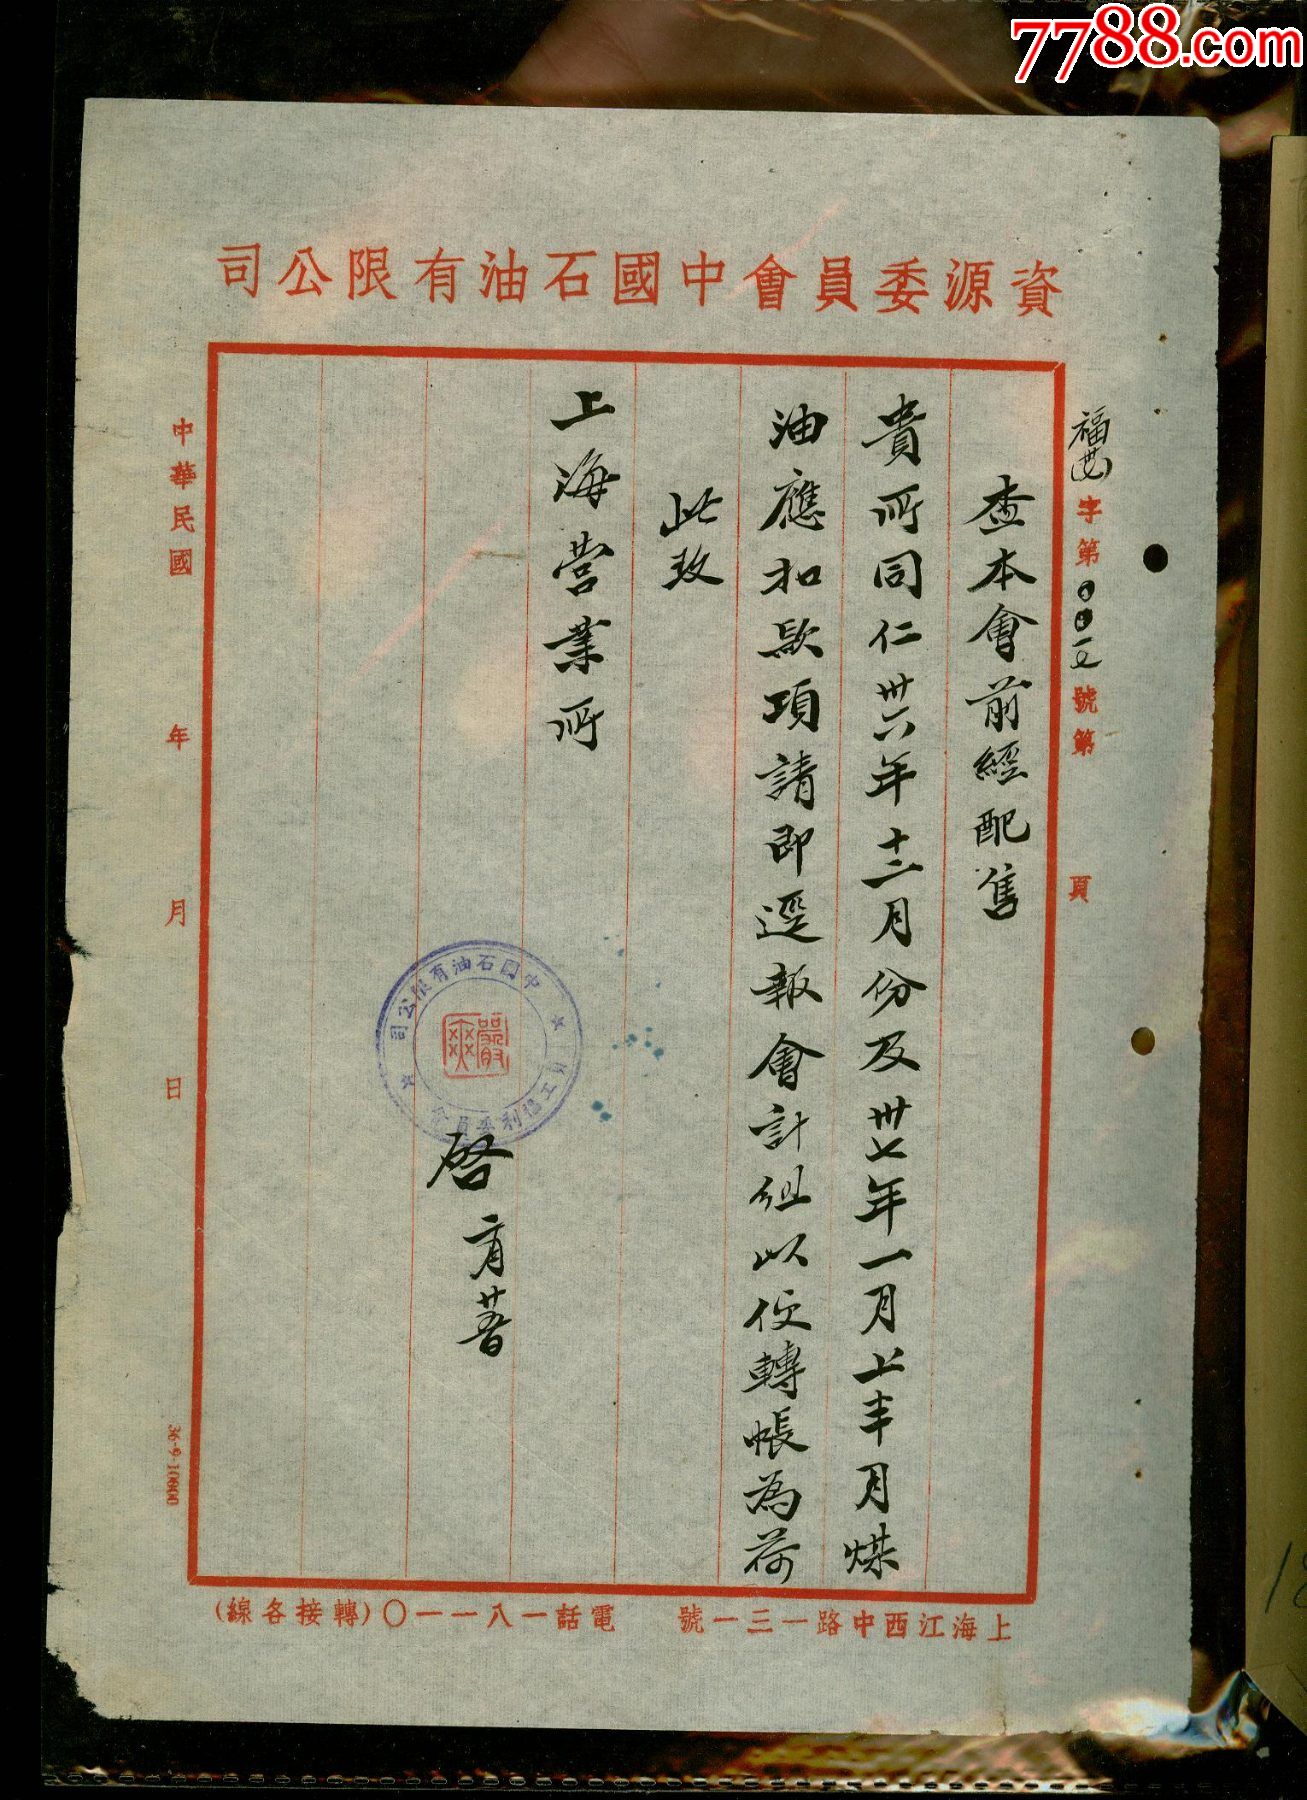 7788.com
資源委員會中國石油有限公司
字第001七號第 頁
查本會前經配售
貴所同仁卅六年十二月份及卅七年一月上半月煤
油應扣款項請即逕報會計組以便轉帳為荷
此致
上海營業所
中國石油有限公司
員工福利委員會
啓
中華民國 年 月 日
36·9·10000
上海江西中路一三一號 電話一八一一〇(轉接各線)